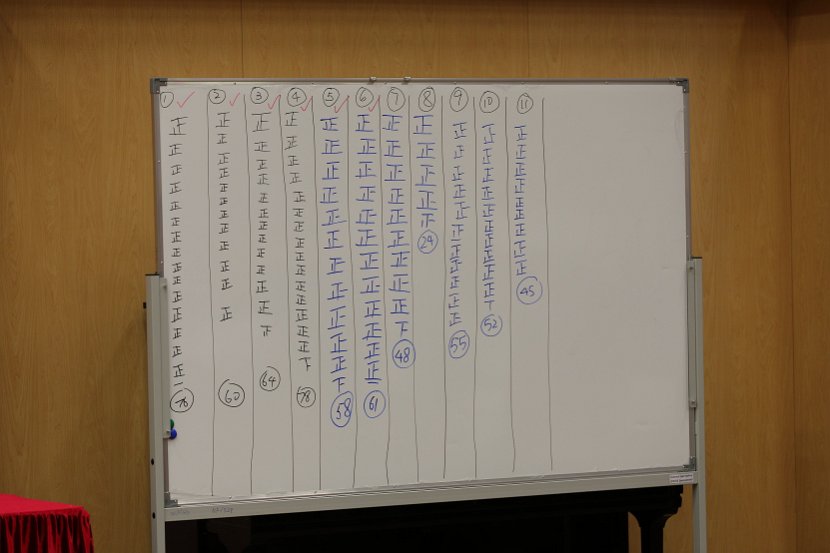 ① 正正正正正正正正正正正正正正正一 76
② 正正正正正正正正正正正正 60
③ 正正正正正正正正正正正正 64
④ 正正正正正正正正正正正正正正正下 78
⑤ 正正正正正正正正正正正下 58
⑥ 正正正正正正正正正正正正一 61
⑦ 正正正正正正正正正下 48
⑧ 正正正正 24
⑨ 正正正正正正正正正正正 55
⑩ 正正正正正正正正正正丅 52
⑪ 正正正正正正正正正 45